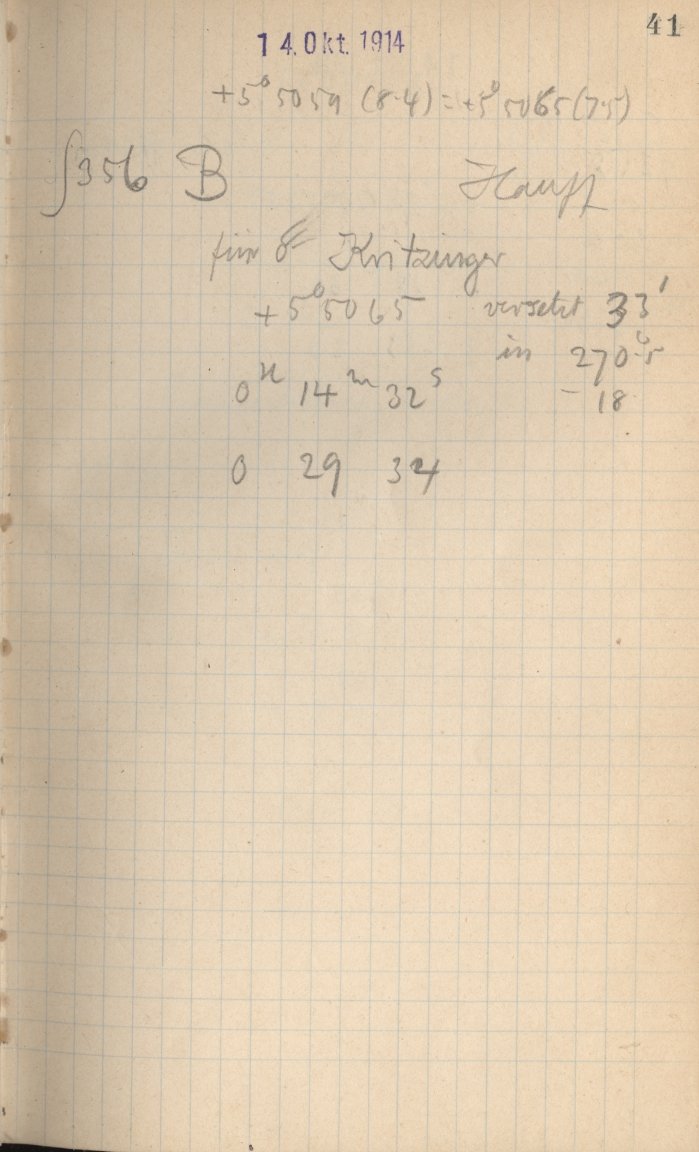 41
14. Okt. 1914
+5° 5059 (8.4) = +5° 5065 (7.5)
∫356 B Hauff
für Kritzinger
+5° 5065 versetzt 33'
in 270°.5
0ʰ 14ᵐ 32ˢ -18
0 29 34